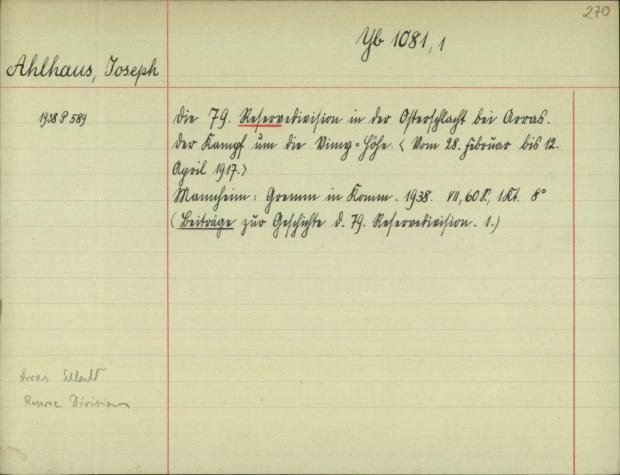 270
Yb 1081,1
Ahlhaus, Joseph
1938 P 589
Die 79. Reservedivision in der Osterschlacht bei Arras.
Der Kampf um die Vimy-Höhe. < Vom 28. Februar bis 12.
April 1917.>
Mannheim: Gremm in Komm. 1938. VII, 60 S., 1 Kt. 8°
(Beiträge zur Geschichte d. 79. Reservedivision. 1.)
Arras Schlacht
Reserve Division